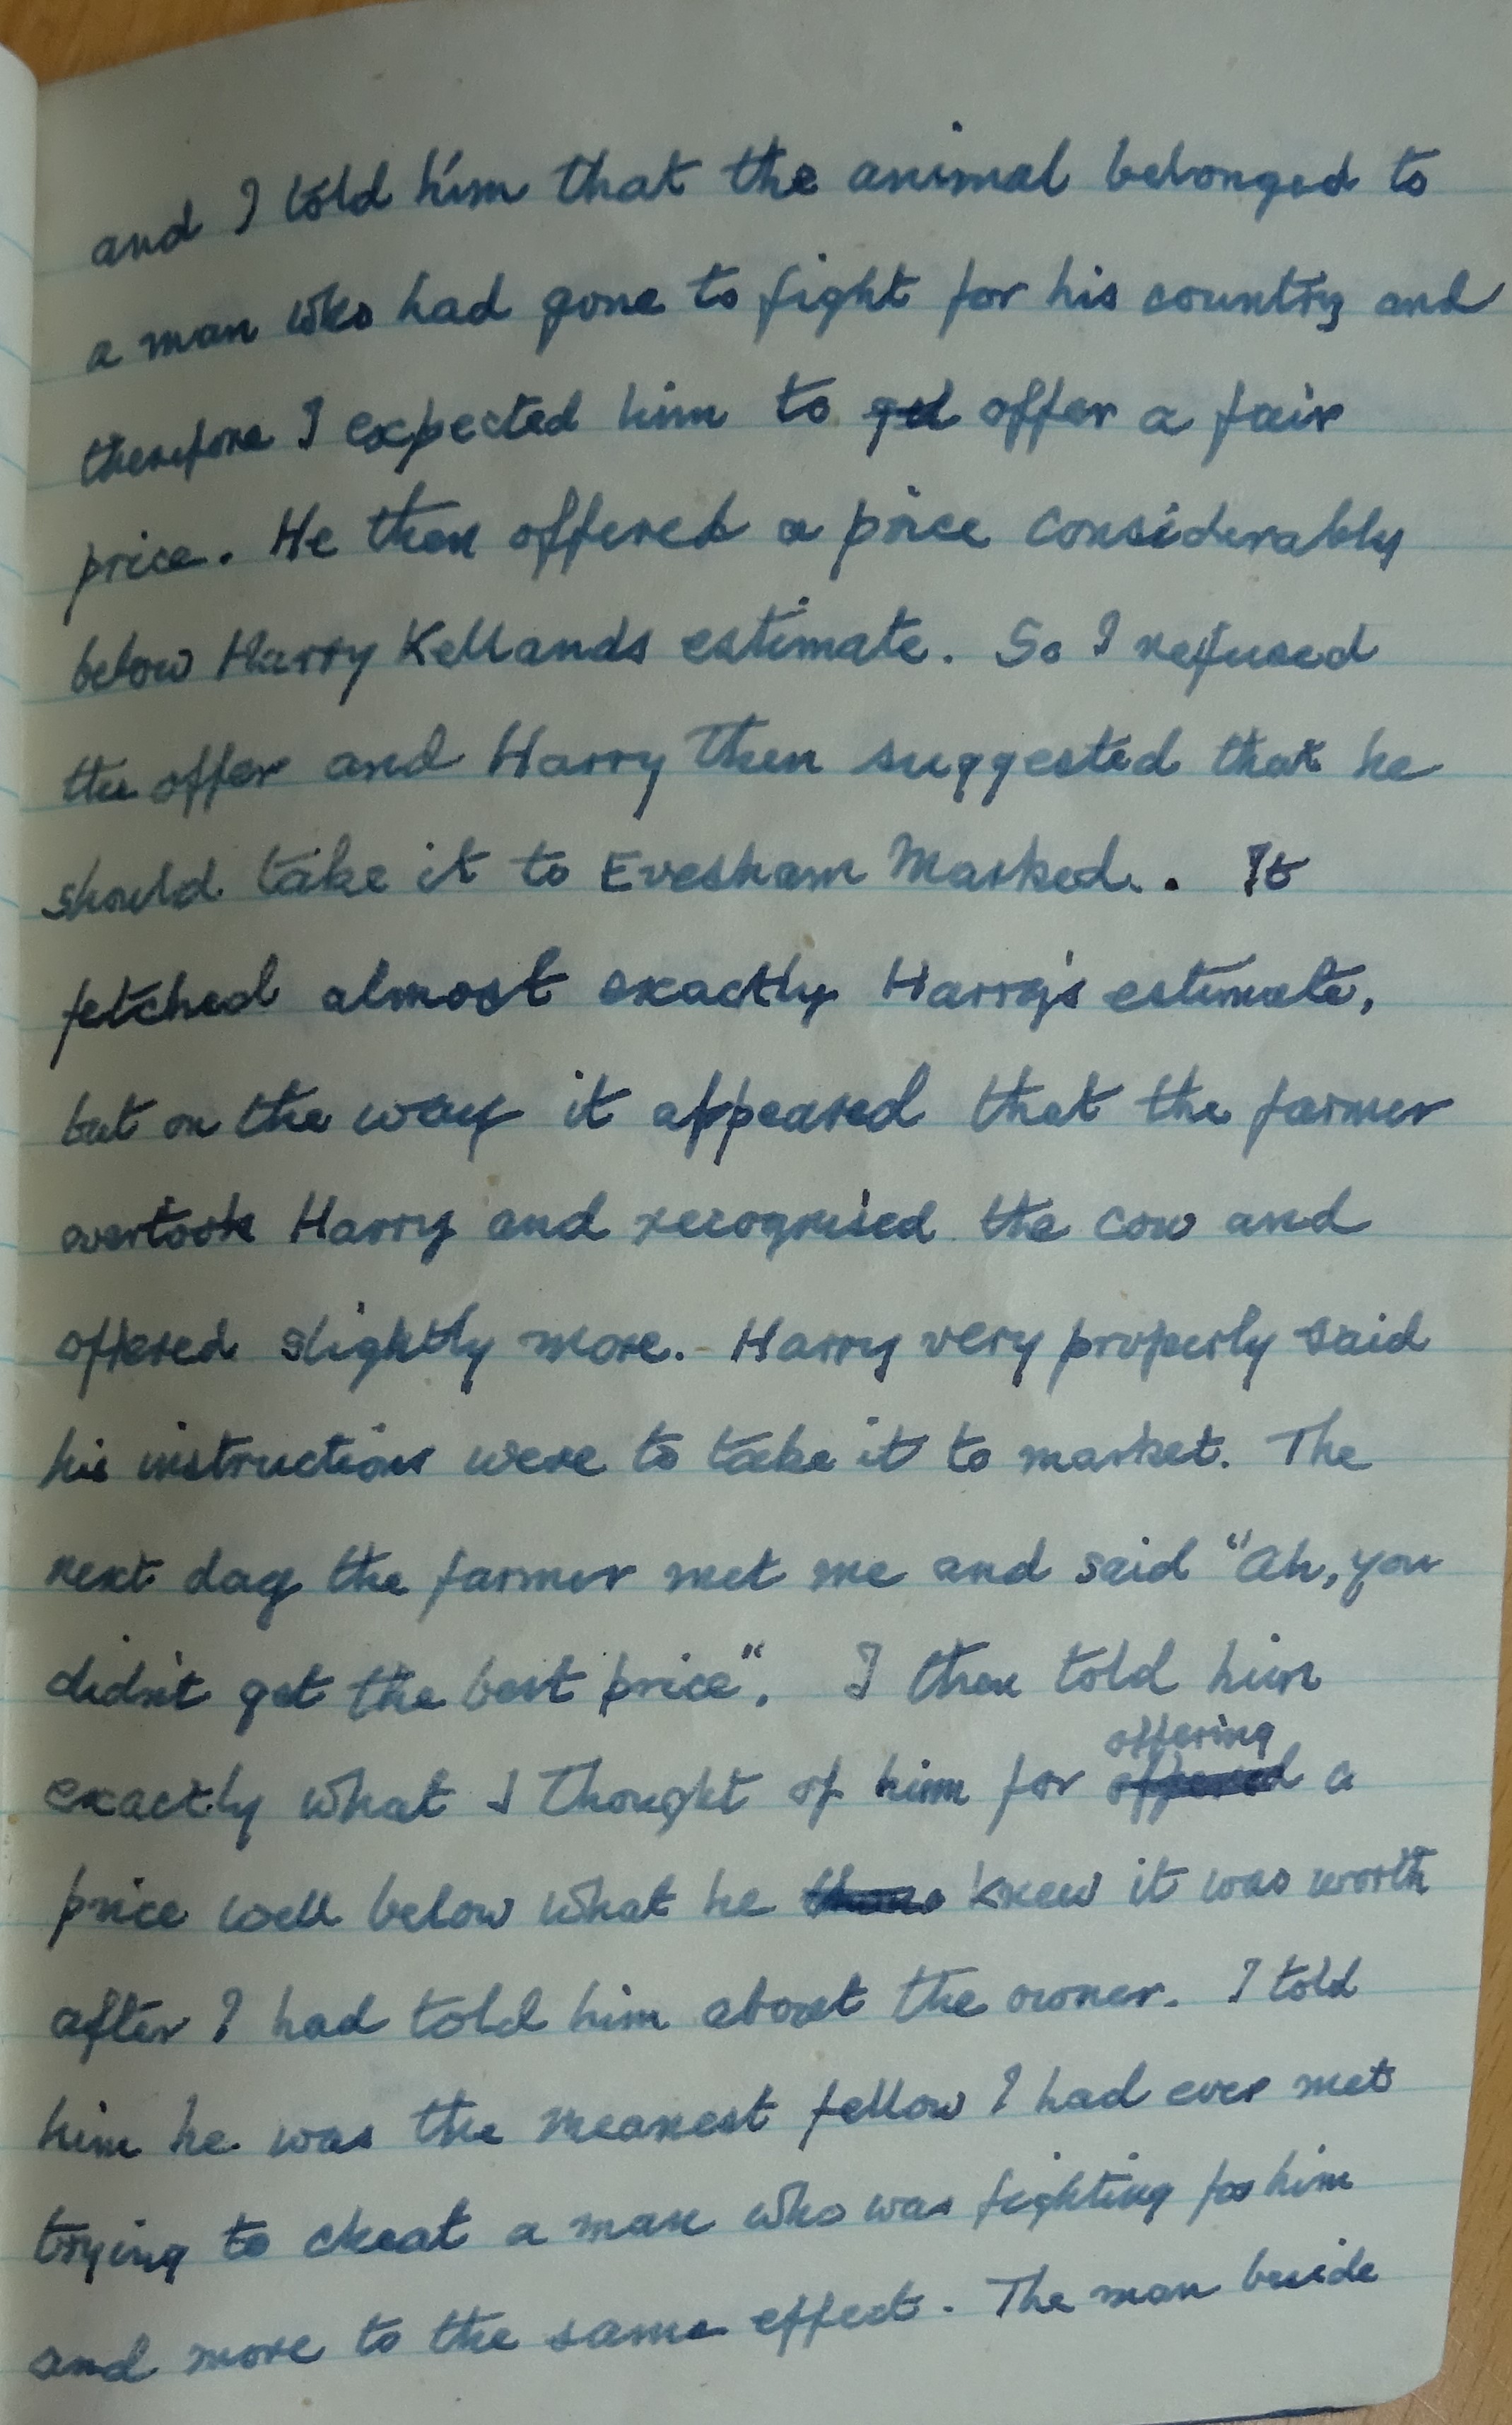 and I told him that the animal belonged to
a man who had gone to fight for his country and
therefore I expected him to offer a fair
price. He then offered a price considerably
below Harry Kellands estimate. So I refused
the offer and Harry then suggested that he
should take it to Evesham Marked. . It
fetched almost exactly Harry's estimate,
but on the way it appeared that the farmer
overtook Harry and recognised the cow and
offered slightly more. Harry very properly said
his instructions were to take it to market. The
next day the farmer met me and said "Ah, you
didn't get the best price". I then told him
offering
exactly what I thought of him for offered a
price well below what he knew it was worth
after I had told him about the owner. I told
him he was the meanest fellow I had ever met
trying to cheat a man who was fighting for him
and more to the same effect. The man beside